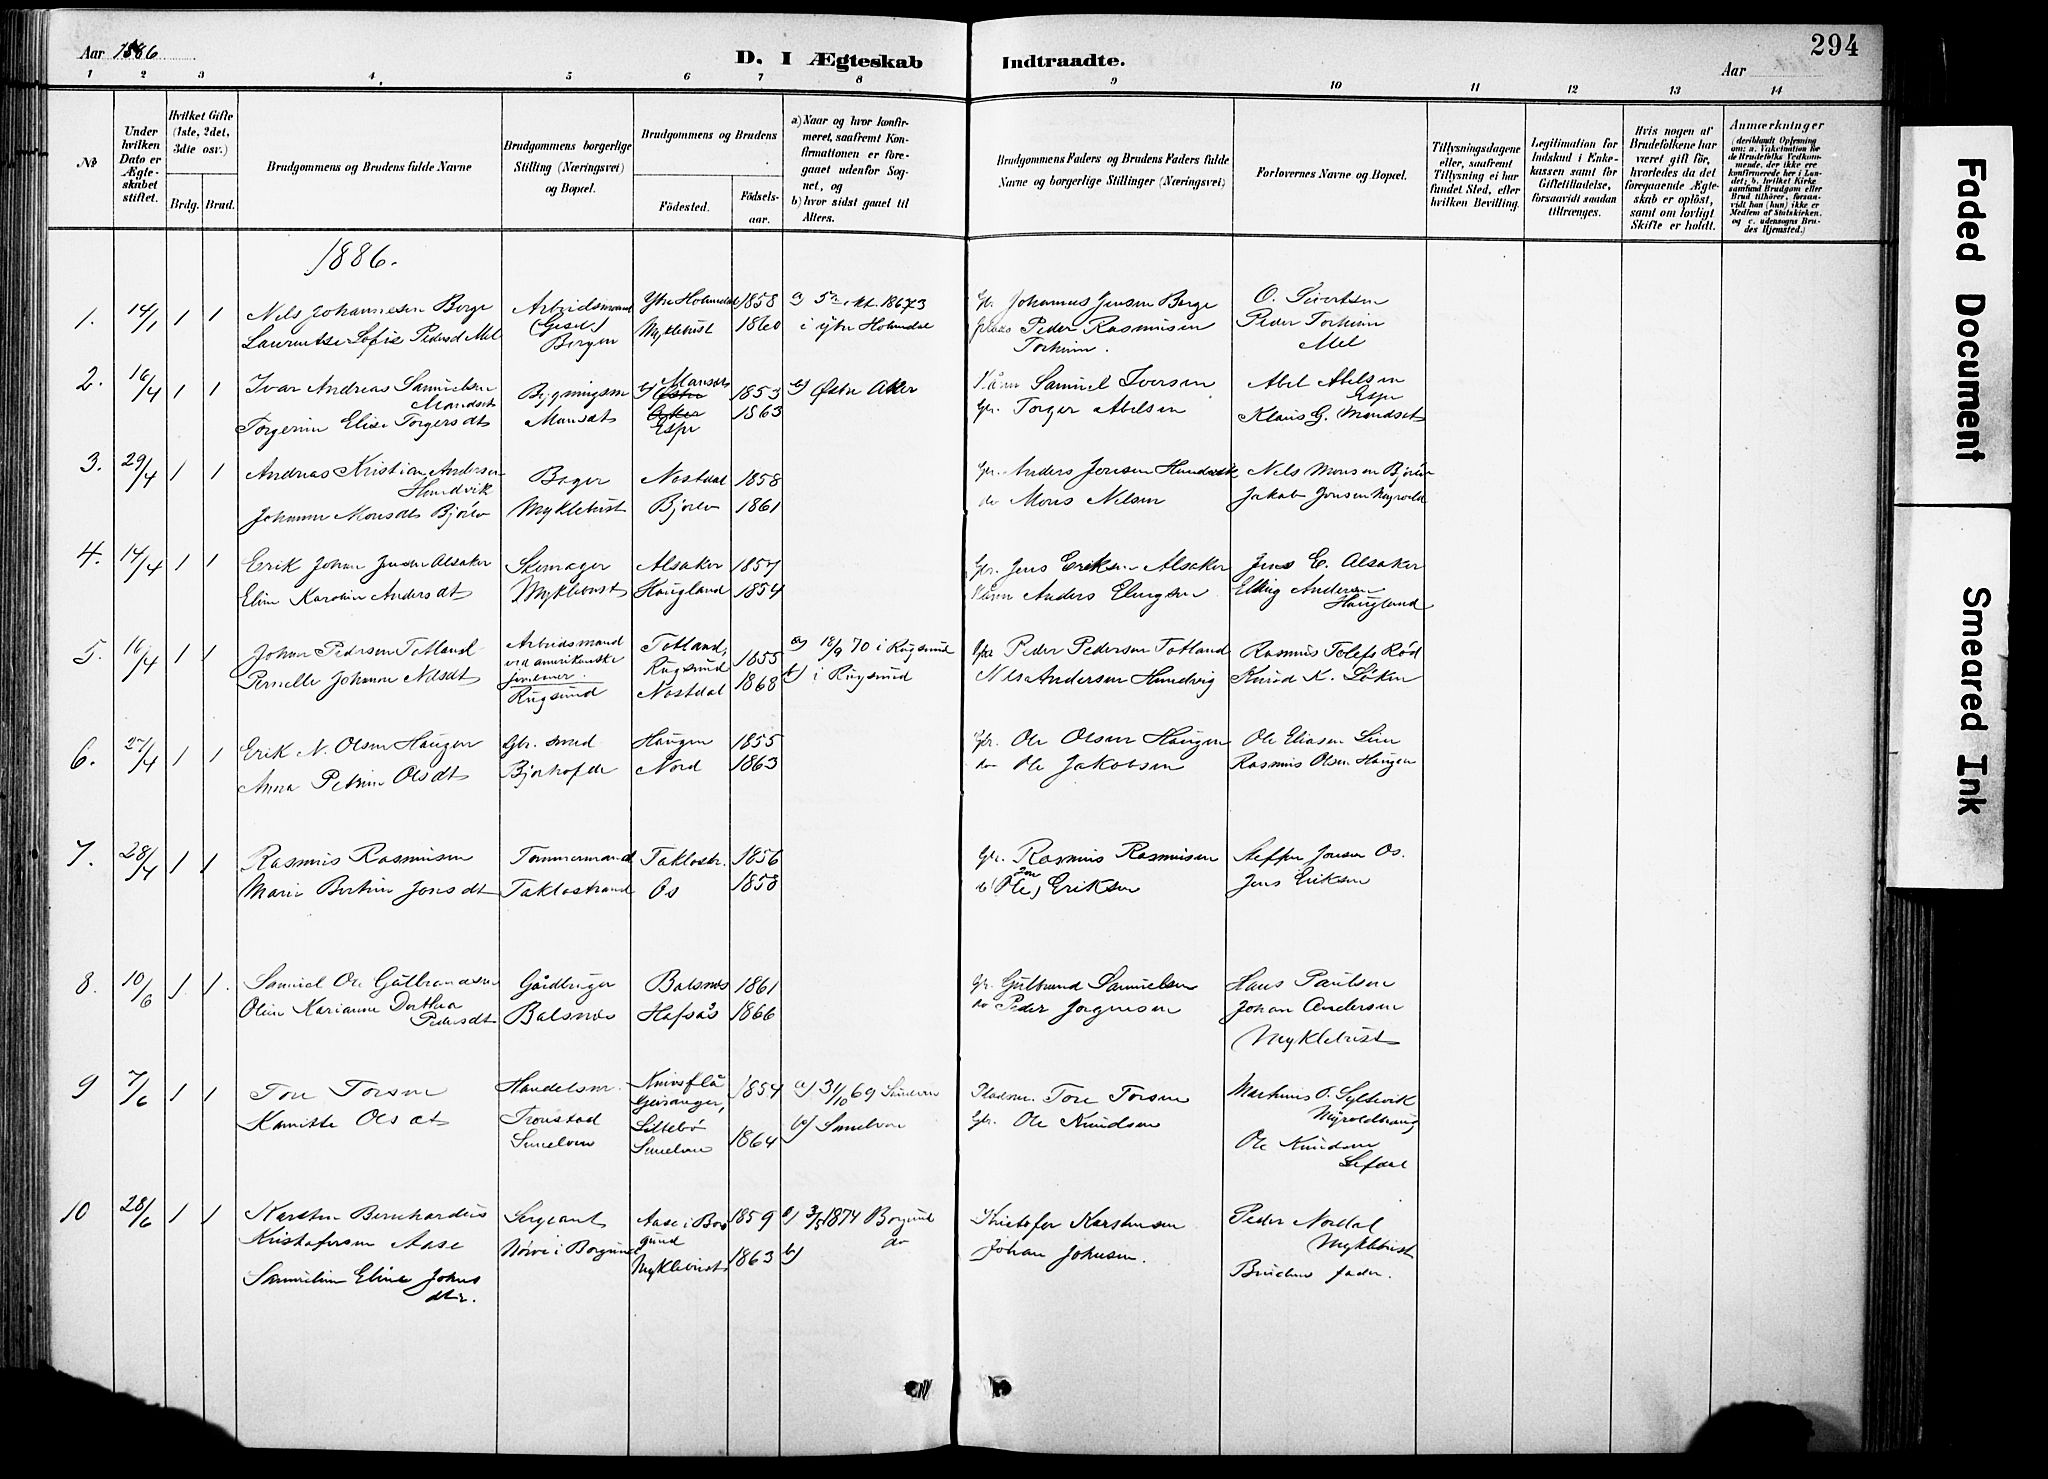 Aar 1886
D. I Ægteskab Indtraadte.
Aar
294
1 2 3 4 5 6 7 8 9 10 11 12 13 14
No
Under hvilken Dato er Ægteskabet stiftet.
Hvilket Gifte (1ste, 2det, 3die osv.)
Brdg. Brud.
Brudgommens og Brudens fulde Navne
Brudgommens borgerlige Stilling (Næringsvei) og Bopæl.
Brudgommens og Brudens
Fødested.
Fødselsaar.
a) Naar og hvor konfirmeret, saafremt Konfirmationen er foregaaet udenfor Sognet, og
b) hvor sidst gaaet til Alters.
Brudgommens Faders og Brudens Faders fulde Navne og borgerlige Stillinger (Næringsvei)
Forlovernes Navne og Bopæl.
Tillysningsdagene eller, saafremt Tillysning ei har fundet Sted, efter hvilken Bevilling.
Legitimation for Indskud i Enkekassen samt for Giftetilladelse, forsaavidt saadan tiltrænges.
Hvis nogen af Brudefolkene har været gift før, hvorledes da det foregaaende Ægteskab er opløst, samt om lovligt Skifte er holdt.
Anmærkninger
(deriblandt Oplysning om: a. Vakcination for de Brudefolks Vedkommende, der ikke ere konfirmerede her i Landet; b. hvilket Kirkesamfund Brudgom eller Brud tilhører, forsaavidt han (hun) ikke er Medlem af Statskirken, og c. udensogns Brudes Hjemsted.)
1886.
1. 14/1 1 1 Nels Johannesen Borge Ytre Holmedal 1858
Peder Mel Bergen Myklebust 1860 i ytre Holmedal
Johannes Jensen Borge
Peder Rasmusen
Peder
Mel
2. 16/4 1 1 Ivar Andreas Samuelsen Mandset
Elise Torgersdt Mansæt Espe
1853 1863
b) Østre Aker
Samuel Iversen
Gbr. Torger Abelsen
Abel Abelsen Espe
Klaus G. Mandset
3. 29/4 1 1 Andreas Kristian Andersen Hundvik
Johanne Monsdt Bjørlo
Bager Myklebust
Nostdal Bjørlo
1858 1861
Gbr. Anders Jensen Hundvik
do Mons Nelsen
Nels Monsen Bjørlo
Jakob Jonsen Myrold
4. 14/4 1 1 Erik Johan Alsaker
Eline Karoline Andersdt
Skomager Myklebust
Alsaker Haugland
1857 1854
Gbr. Jens Eriksen Alsaker
Anders Elingsen
Jens E. Alsaker
Elling Andersen Haugland
5. 16/4 1 1 Johan Pedersen Totland
Pernelle Johanne Nilsdt
Arbeidsmand ved amerikanske
Rugsund
Totland, Rugsund
Nostdal
1855 1868
a) 18/9 70 i Rugsund
b) i Rugsund
Peder Pedersen Totland
Nils Andersen Hundvig
Rasmus Tolefs Rød
Knud K. Løken
6. 27/4 1 1 Erik N. Olsen Haugen
Anna Petrine Olsdt
Haugen 1855
Nord 1863
Gbr. Ole Olsen Haugen
do Ole Jakobsen
Ole Eliasen
Rasmus Olsen Haugen
7. 28/4 1 1 Rasmus Rasmusen
Marie Bertine Jonsdt
Tømmermand
Taklostrand
Taklostr. 1856
Os 1858
Gbr. Rasmus Rasmusen
(Ole) Eriksen
Steffen Jonsen Os.
Jens Eriksen
8. 10/6 1. 1. Samuel Ole Gulbrandsen
Oline Karianne Dorthea Pedersdt
Gårdbruger
Balsnes
Balsnes 1861
Hafsås 1866
Gbr. Gulbrand Samuelsen
do Peder Jørgensen
Hans Paulsen
Johan Andersen
Myklebust
9 7/6 1 1 Tore Torsen
Olsdt
Handelsm.
Sunelven
Knivsflå Geiranger, 1854
Sunelven 1864
a) 31/10 69 Sunelven
b) Sunelven
Pladsm. Tore Torsen
Gbr. Ole Knudsen
Martinus O. Syltevik
Ole Knudsen
10 28/6 1 1 Karsten Bernhardus
Kristofersen Aase
Eline Johns dtr.
Sergeant
Nørve i Borgund
Aase i Borgund 1859
Myklebust 1863
a) 3/5 1874 Borgund
b) do
Kristofer Karstensen
Johan Johnsen.
Peder Nordal
Myklebust
Brudens fader.
Faded Document
Smeared Ink